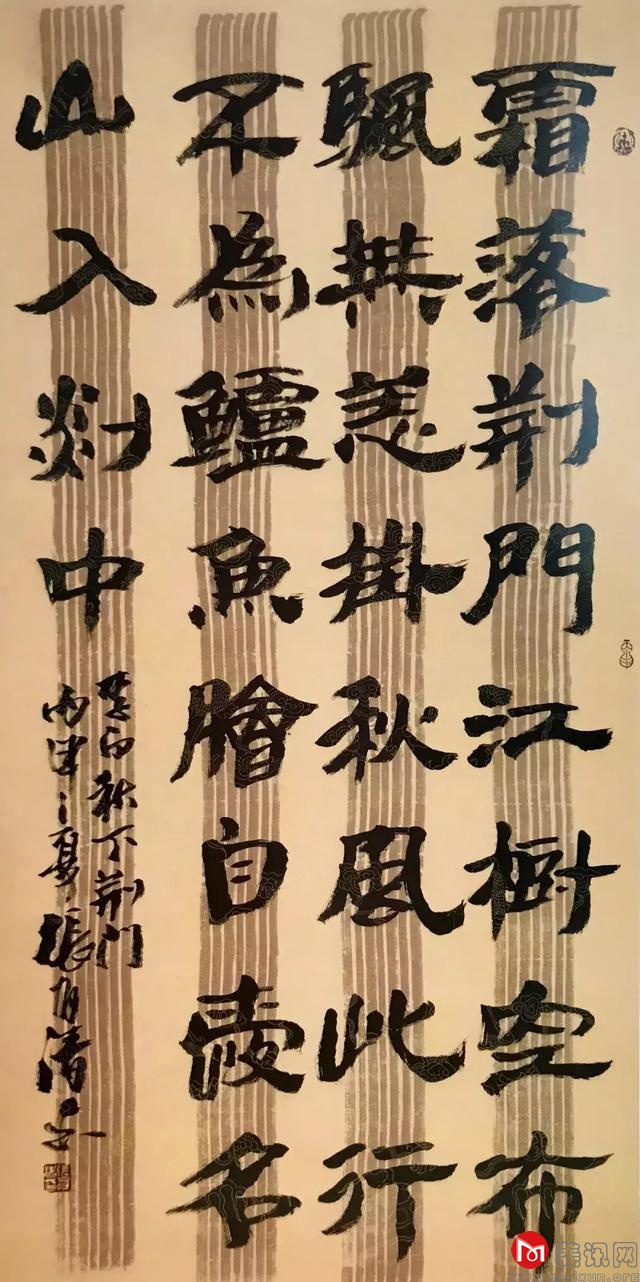 霜落荆門江樹空布
颿無恙掛秋風此行
不為鱸魚膾自愛名
山入剡中
李白秋下荆門
之夏張清
美讯网